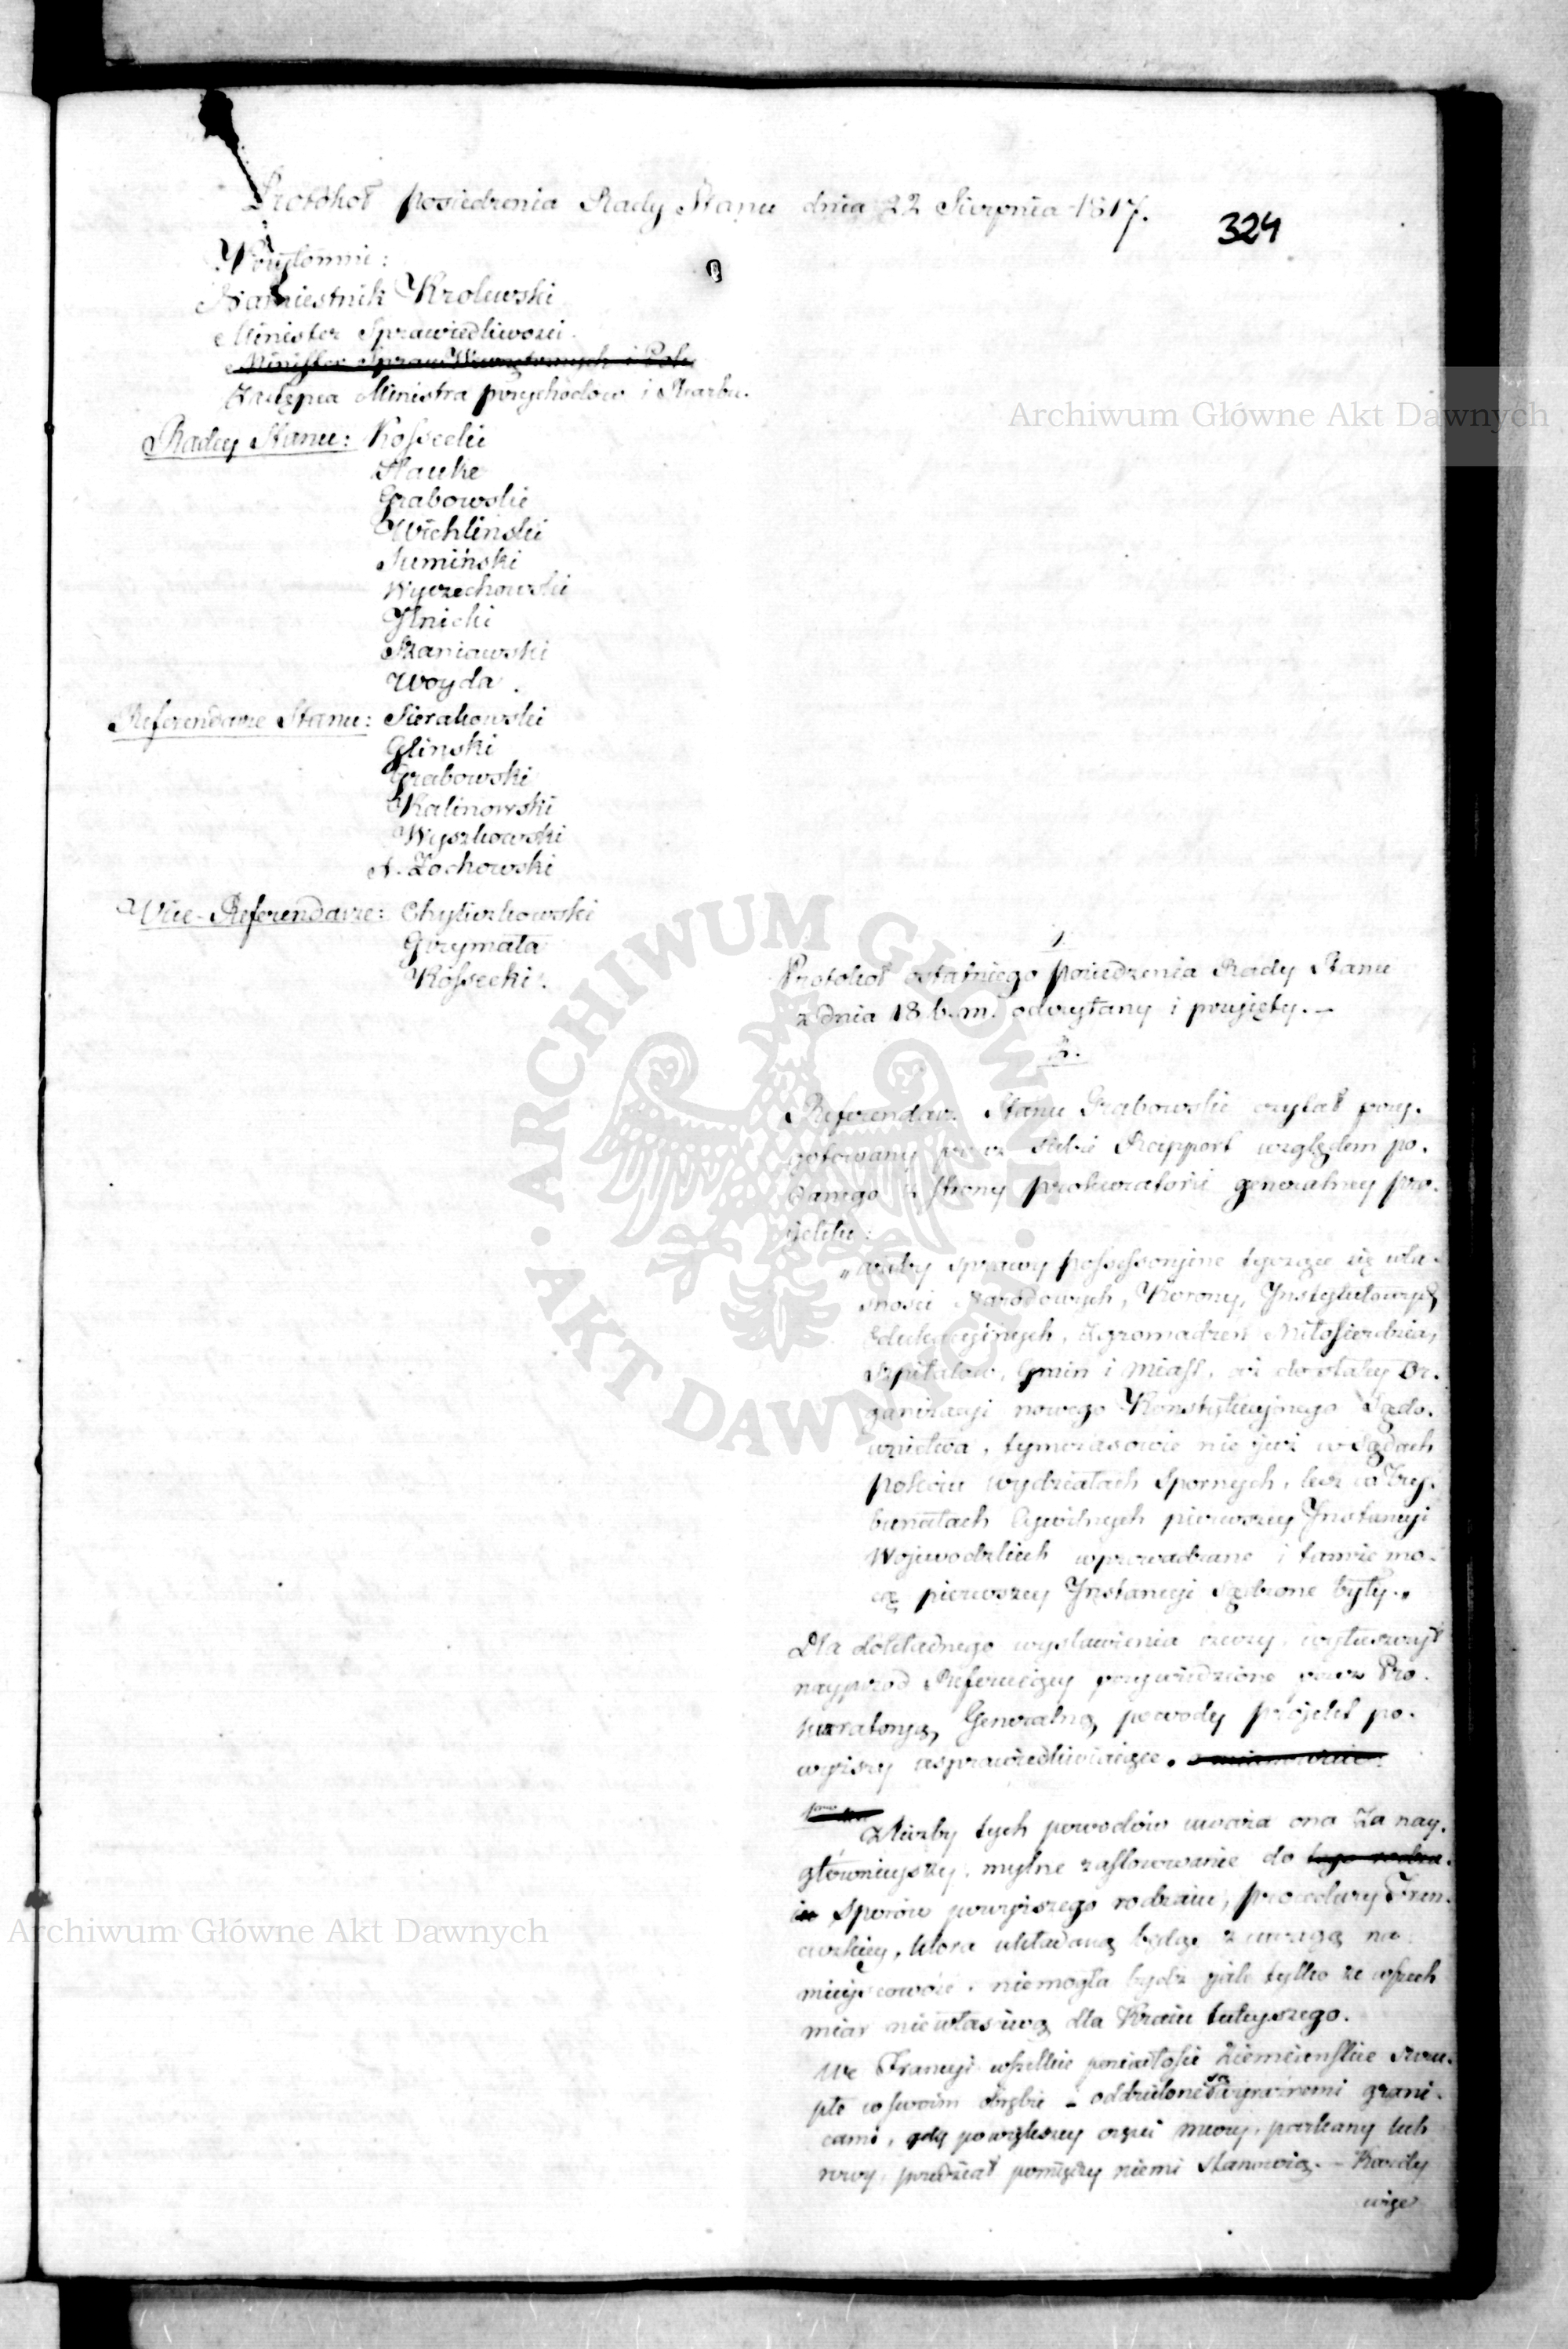 Protokół posiedzenia Rady Stanu dnia 22 Sierpnia 1817.
324
Przytomni:
Namiestnik Krolewski
Minister Sprawiedliwosci.
Minister Spraw Wewnętrznych i Pol
Zastępca Ministra przychodow i Skarbu.
Radcy Stanu: Kossecki
Hauke
Grabowski
Wichliński
Sumiński
Wyczechowski
Ilnicki
Staniawski
Woyda.
Referendarze Stanu: Sierakowski
Glinski
Grabowski
Kalinowski
Wyszkowski
A. Żochowski
Vice-Referendarze: Chyliczkowski
Grzymała
Kossecki.
1.
Protokoł ostatniego posiedzenia Rady Stanu
z dnia 18 b.m. odczytany i przyięty. –
2.
Referendarz Stanu Grabowski czytał przy-
gotowany przez siebie Rapport względem po-
danego z strony prokuratorii generalney pro-
jektu:
„ażeby sprawy possessoryjne tyczące się wła-
sności Narodowych, Korony, Instytutowych
Edukacyinych, zgromadzeń Miłosierdzia,
Szpitalow, Gmin i Miast, aż do stałey Or-
ganizacyi nowego Konstytucyjnego Sądo-
wnictwa, tymczasowie nie już w Sądach
pokoiu wydziałach Spornych, lecz w Try-
bunałach Cywilnych pierwszey Instancyi
Wojewodzkich wprowadzane i tamże mo-
cą pierwszey Instancyi sądzone były.„
Dla dokładnego wystawienia rzeczy, wyłuszczył
nayprzod Referuiący przywiedzione przez Pro-
kuratoryą Generalną powody projekt po-
wyższy usprawiedliwiaiące. a mianowicie:
Z liczby tych powodów uważa ona za nay-
głównieyszy, mylne zastosowanie do tego rodza-
iu sporów powyższego rodzaiu, procedury Fran-
cuzkiey, ktora układaną będąc z uwagą na
mieyscowość, niemogła bydź jak tylko ze wszech
miar niewłasciwą dla Kraiu tuteyszego.
We Francyi wszelkie posiadłości Ziemiańskie szczu-
płe w swoim obrębie – oddzielone są wyraźnemi grani-
cami, gdy powiększey części mury, parkany lub
rowy, przedział pomiędzy niemi stanowią. – Każdy
więc
Archiwum Główne Akt Dawnych
Archiwum Główne Akt Dawnych
ARCHIWUM GŁÓWNE · AKT DAWNYCH ·